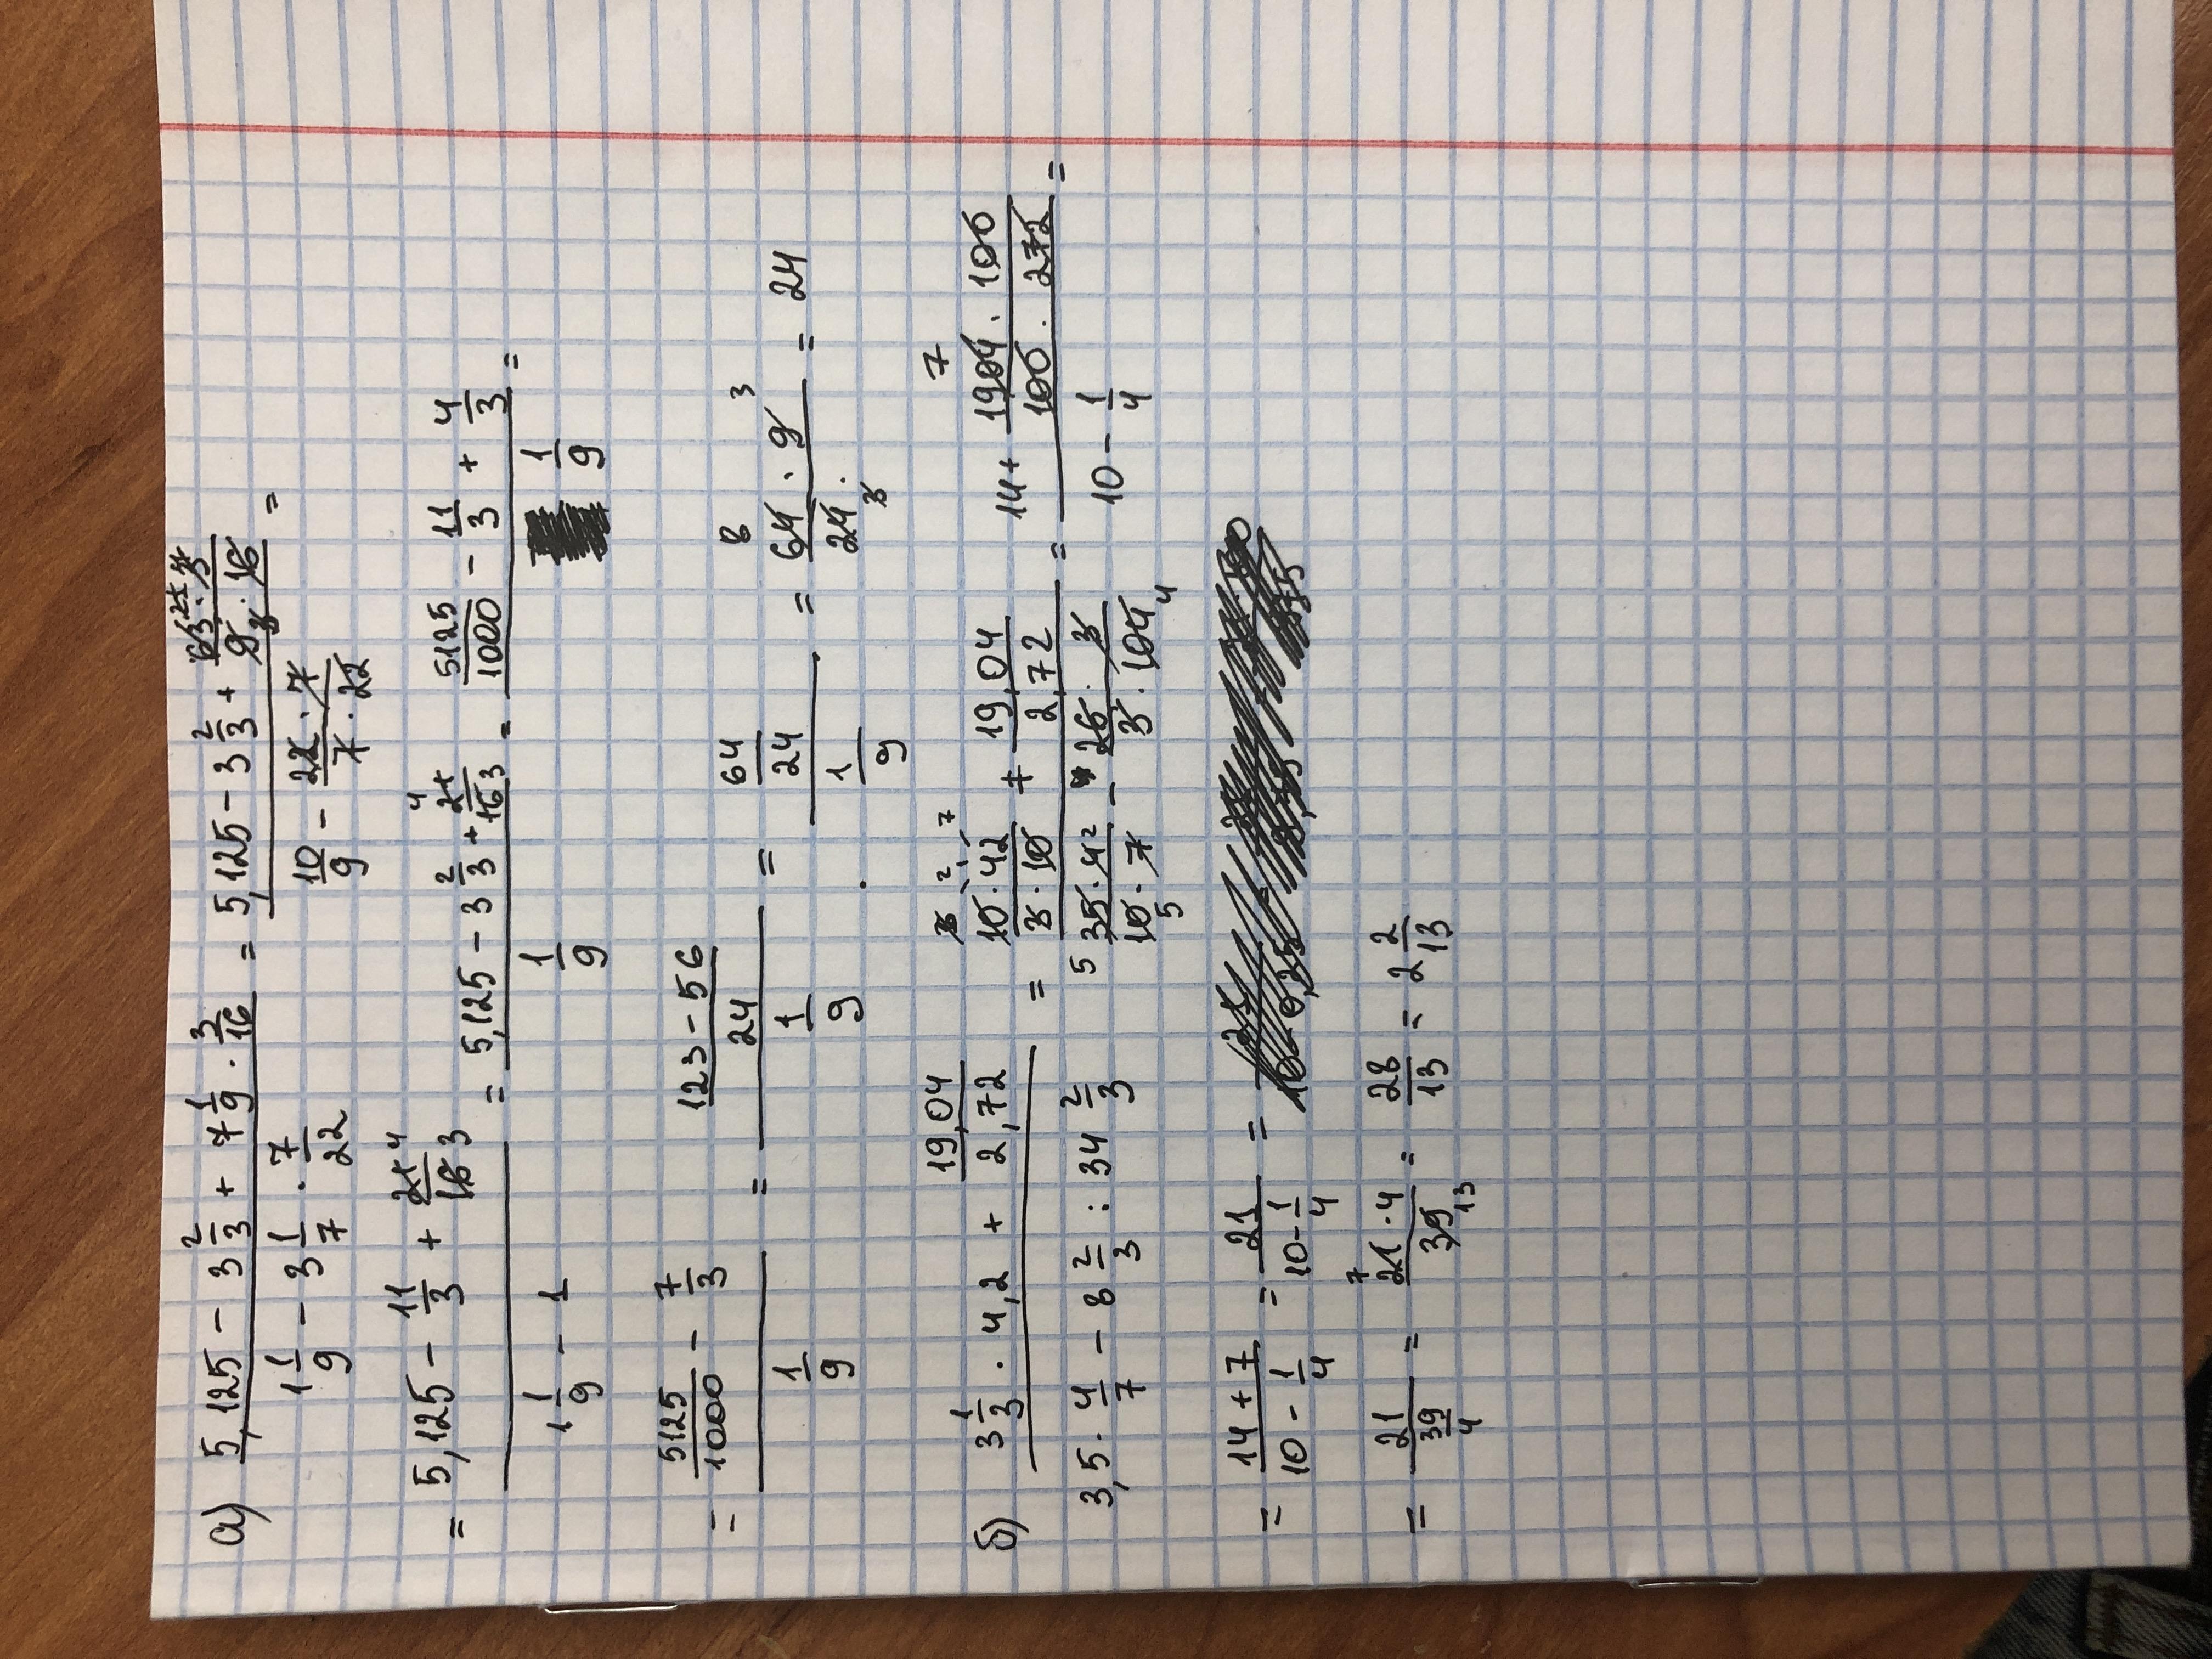 а) (5,125 - 3 2/3 + 7 1/9 · 3/16) / (1 1/9 - 3 1/7 · 7/22) = (5,125 - 3 2/3 + (63 · 3)/(9 · 16)) / (10/9 - (22 · 7)/(7 · 22)) =
= (5,125 - 11/3 + 4/3) / (1 1/9 - 1) = (5,125 - 3 2/3 + 4/3) / (1/9) = (5125/1000 - 11/3 + 4/3) / (1/9) =
= (5125/1000 - 7/3) / (1/9) = ((123 - 56)/24) / (1/9) = (64/24) / (1/9) = (64 · 9)/24 = 24
б) (3 1/3 · 4,2 + 19,04/2,72) / (3,5 · 4/7 - 8 2/3 : 34 2/3) = ((10 · 42)/(3 · 10) + 19,04/2,72) / ((35 · 4)/(10 · 7) - (26 · 3)/(3 · 104)) = (14 + (1904 · 100)/(100 · 272)) / (10 - 1/4) =
= (14 + 7)/(10 - 1/4) = 21/(10 - 1/4) =
= 21/(39/4) = (21 · 4)/39 = 28/13 = 2 2/13